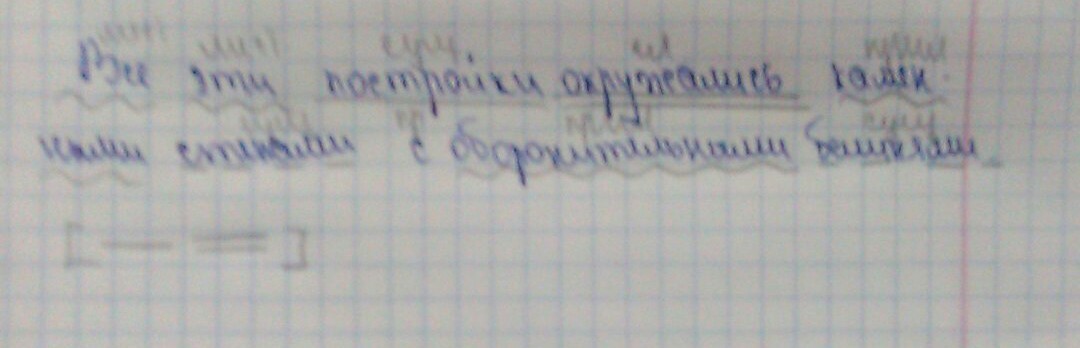 сущ. гл прил
Все эти постройки окружались камен-
сущ пр прил сущ
ными стенами с оборонительными башнями.